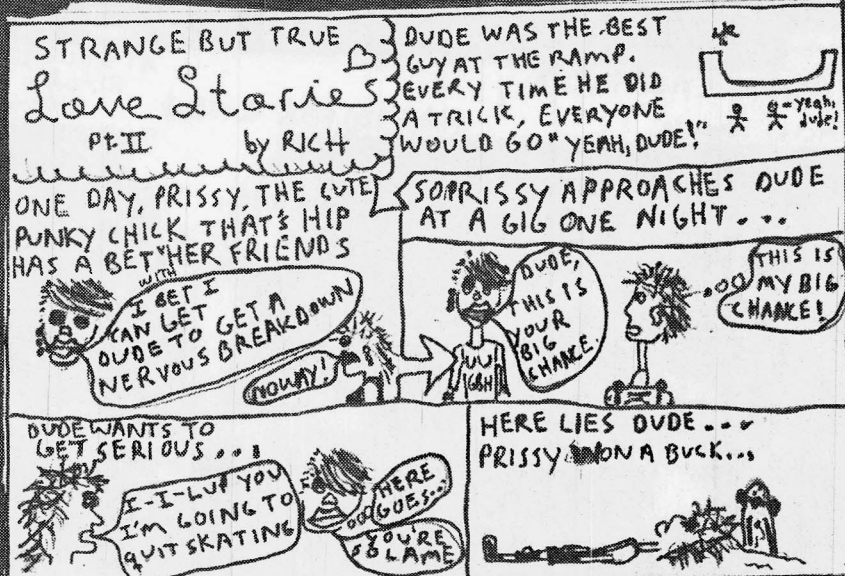 STRANGE BUT TRUE
Love Stories
pt. II by RICH
DUDE WAS THE BEST
GUY AT THE RAMP.
EVERY TIME HE DID
A TRICK, EVERYONE
WOULD GO "YEAH, DUDE!"
"yeah,
dude!
ONE DAY, PRISSY, THE CUTE
PUNKY CHICK THAT'S HIP
HAS A BET WITH HER FRIENDS
I BET I
CAN GET
DUDE TO GET A
NERVOUS BREAKDOWN
NO WAY!
SO PRISSY APPROACHES DUDE
AT A GIG ONE NIGHT...
DUDE,
THIS IS
YOUR
BIG
CHANCE.
GBH
THIS IS
MY BIG
CHANCE!
DUDE WANTS TO
GET SERIOUS...
I-I-LUV YOU
I'M GOING TO
QUIT SKATING
HERE
GOES...
YOU'RE
SO LAME
HERE LIES DUDE....
PRISSY WON A BUCK...